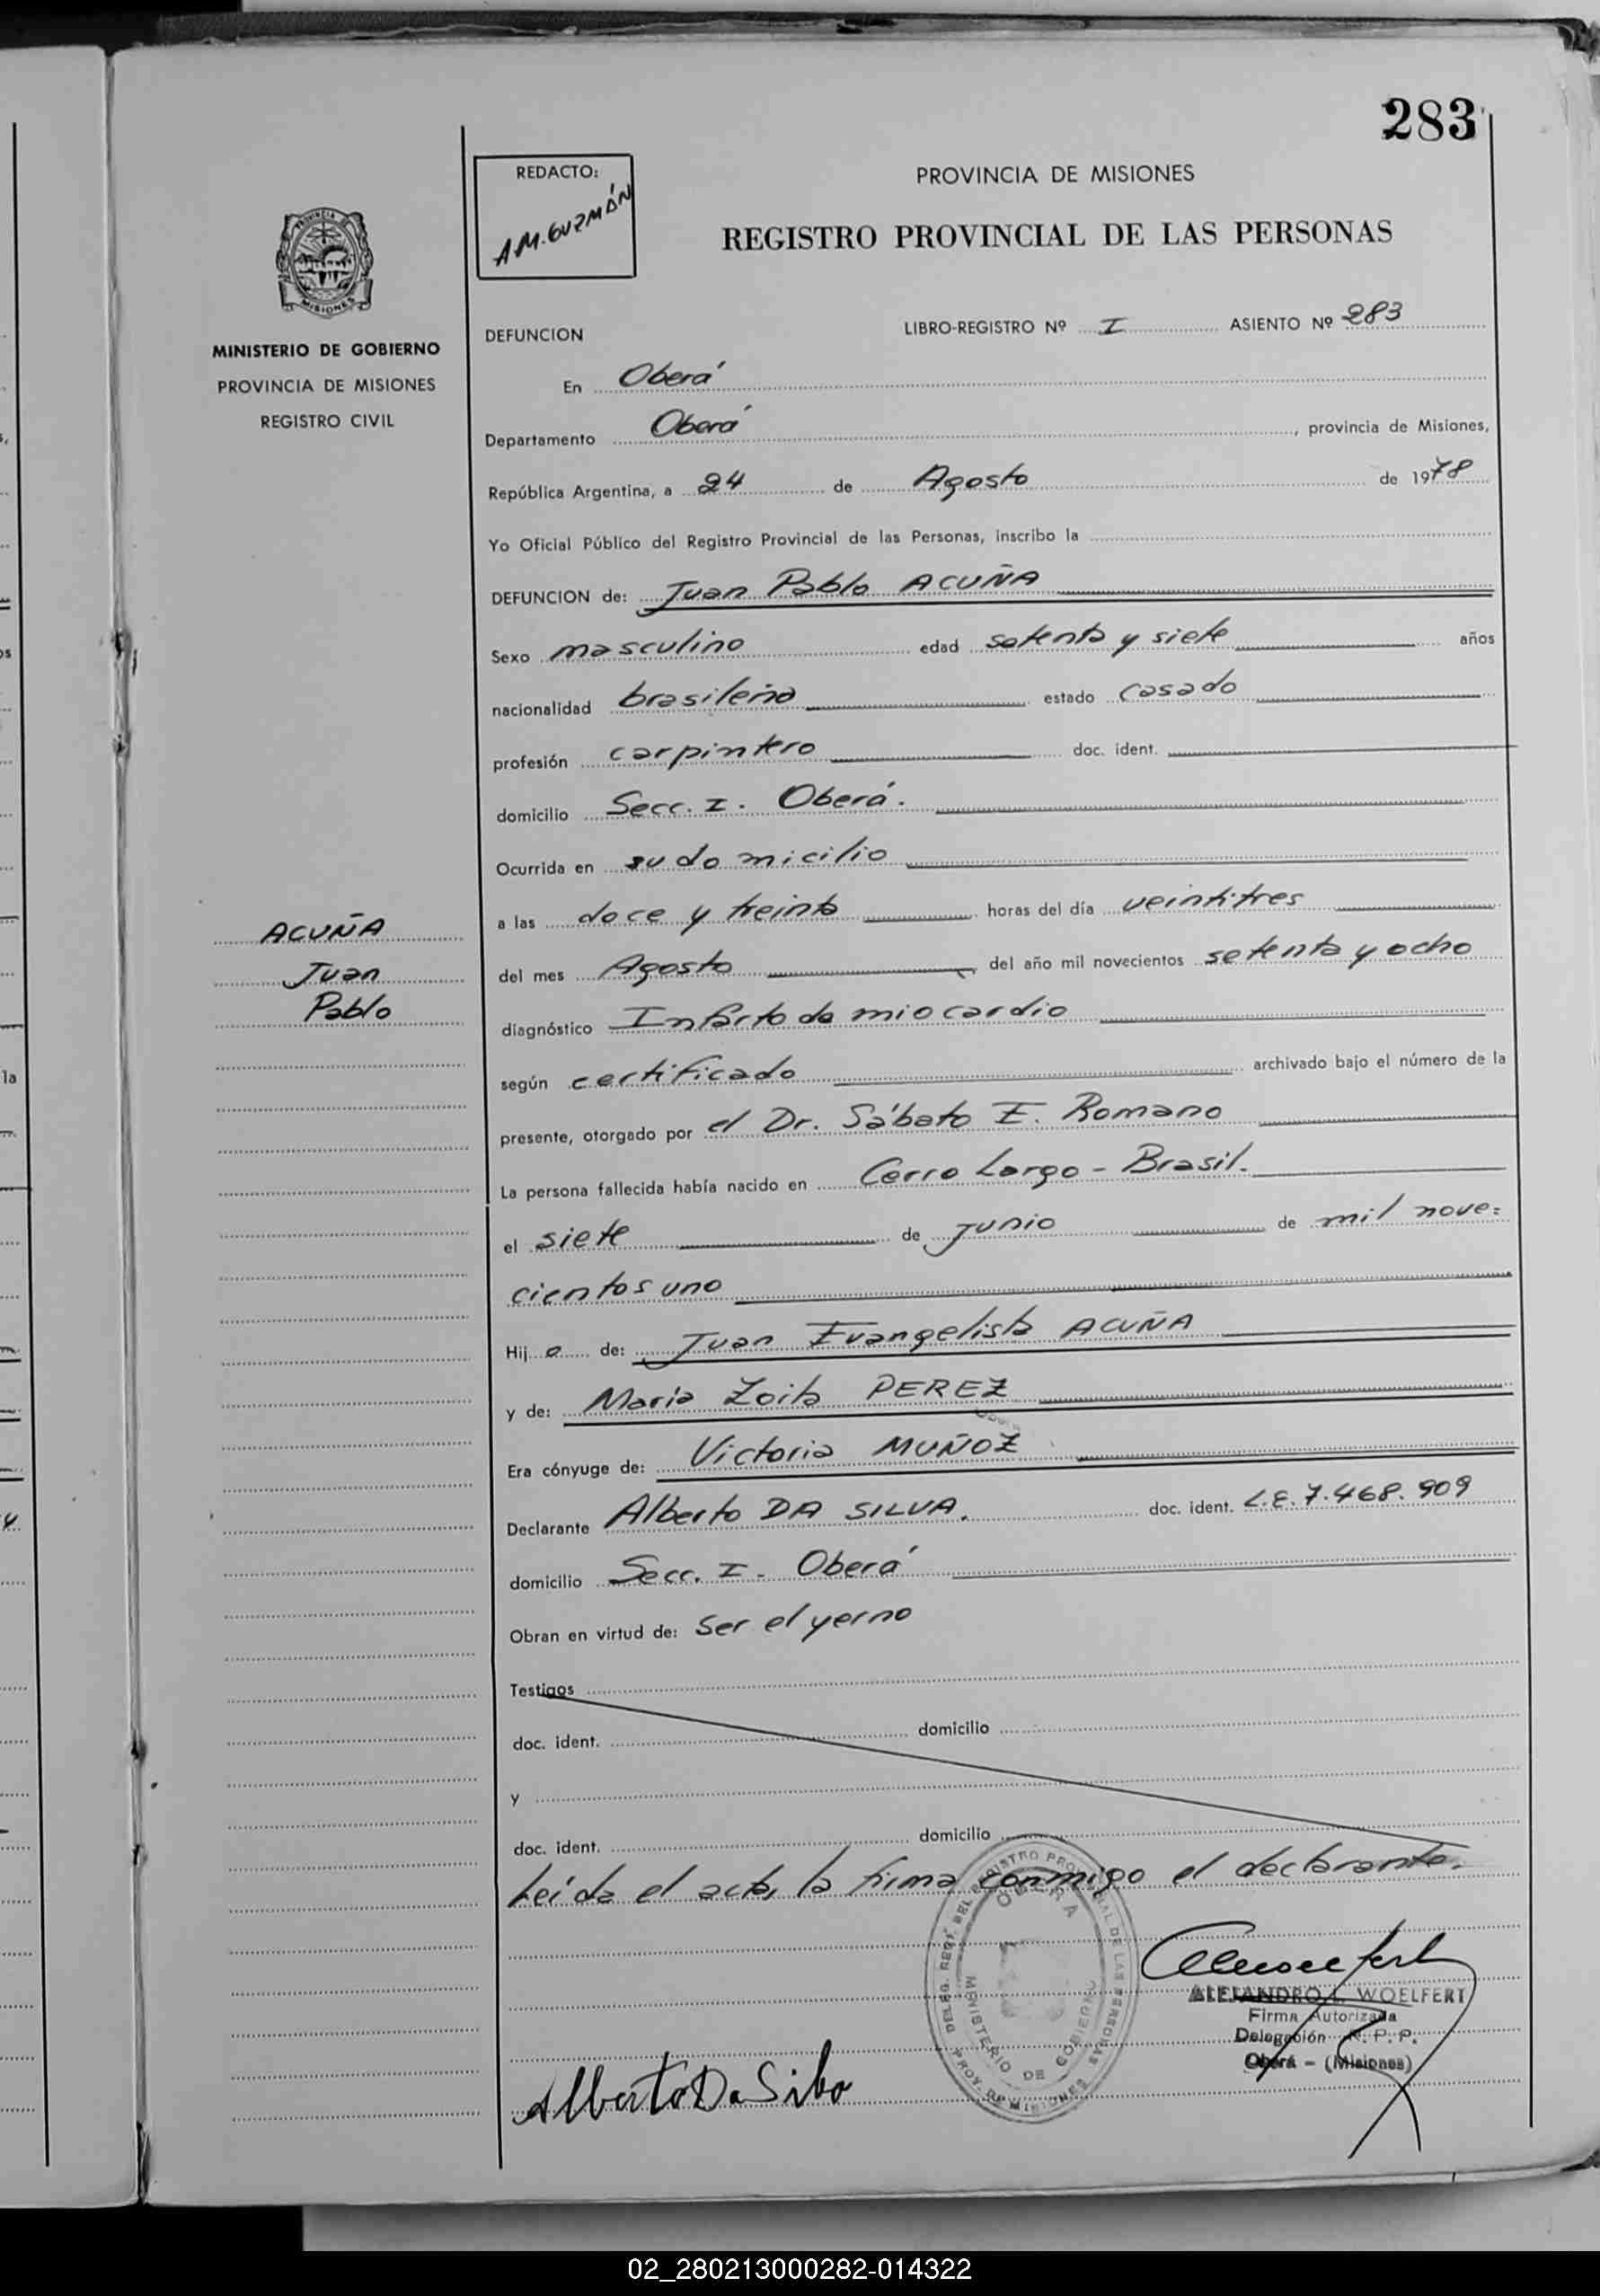 283
REDACTO:
A.M. GUZMÁN
PROVINCIA DE MISIONES
REGISTRO PROVINCIAL DE LAS PERSONAS
MISIONES
MINISTERIO DE GOBIERNO
PROVINCIA DE MISIONES
REGISTRO CIVIL
DEFUNCION
LIBRO-REGISTRO Nº I ASIENTO Nº 283
En Oberá
Departamento Oberá, provincia de Misiones,
República Argentina, a 24 de Agosto de 1978
Yo Oficial Público del Registro Provincial de las Personas, inscribo la
DEFUNCION de: Juan Pablo ACUÑA
Sexo masculino edad setenta y siete años
nacionalidad brasileña estado casado
profesión carpintero doc. ident.
domicilio Secc. I. Oberá.
Ocurrida en su domicilio
ACUÑA
Juan
Pablo
a las doce y treinta horas del día veintitres
del mes Agosto, del año mil novecientos setenta y ocho
diagnóstico Infarto de miocardio
según certificado archivado bajo el número de la
presente, otorgado por el Dr. Sábato E. Romano
La persona fallecida había nacido en Cerro Largo - Brasil.
el siete de junio de mil nove=
cientos uno
Hijo de: Juan Evangelista ACUÑA
y de: Maria Zoila PEREZ
Era cónyuge de: Victoria MUÑOZ
Declarante Alberto DA SILVA. doc. ident. L.E. 7.468.909
domicilio Secc. I. Oberá
Obran en virtud de: ser el yerno
Testigos
doc. ident. domicilio
y
doc. ident. domicilio
Leída el acta, la firma conmigo el declarante.
DELEG. REGT. DEL REGISTRO PROVINCIAL DE LAS PERSONAS
OBERA
MINISTERIO DE GOBIERNO
PROV. DE MISIONES
ALEJANDRO L. WOELFERT
Firma Autorizada
Delegación R. P. P.
Oberá - (Misiones)
Alberto Da Silva
02_280213000282-014322